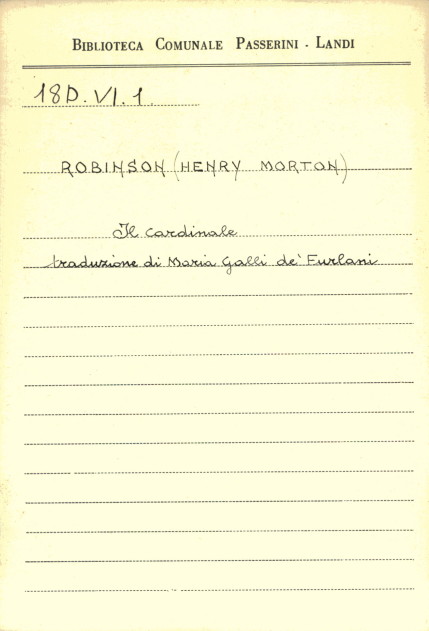 BIBLIOTECA COMUNALE PASSERINI - LANDI
18D. VI. 1.
ROBINSON (HENRY MORTON)
Il cardinale
traduzione di Maria Galli de' Furlani